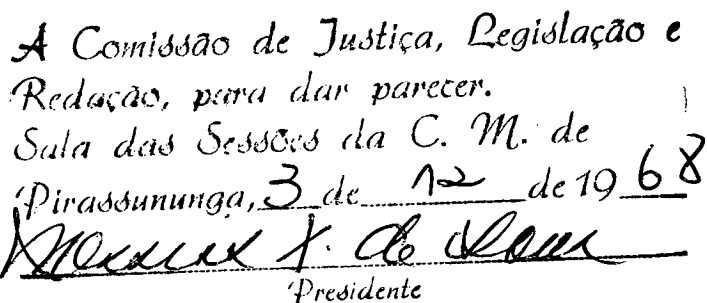 A Comissão de Justiça, Legislação e
Redação, para dar parecer.
Sala das Sessões da C. M. de
Pirassununga, 3 de 12 de 19 68
de
Presidente